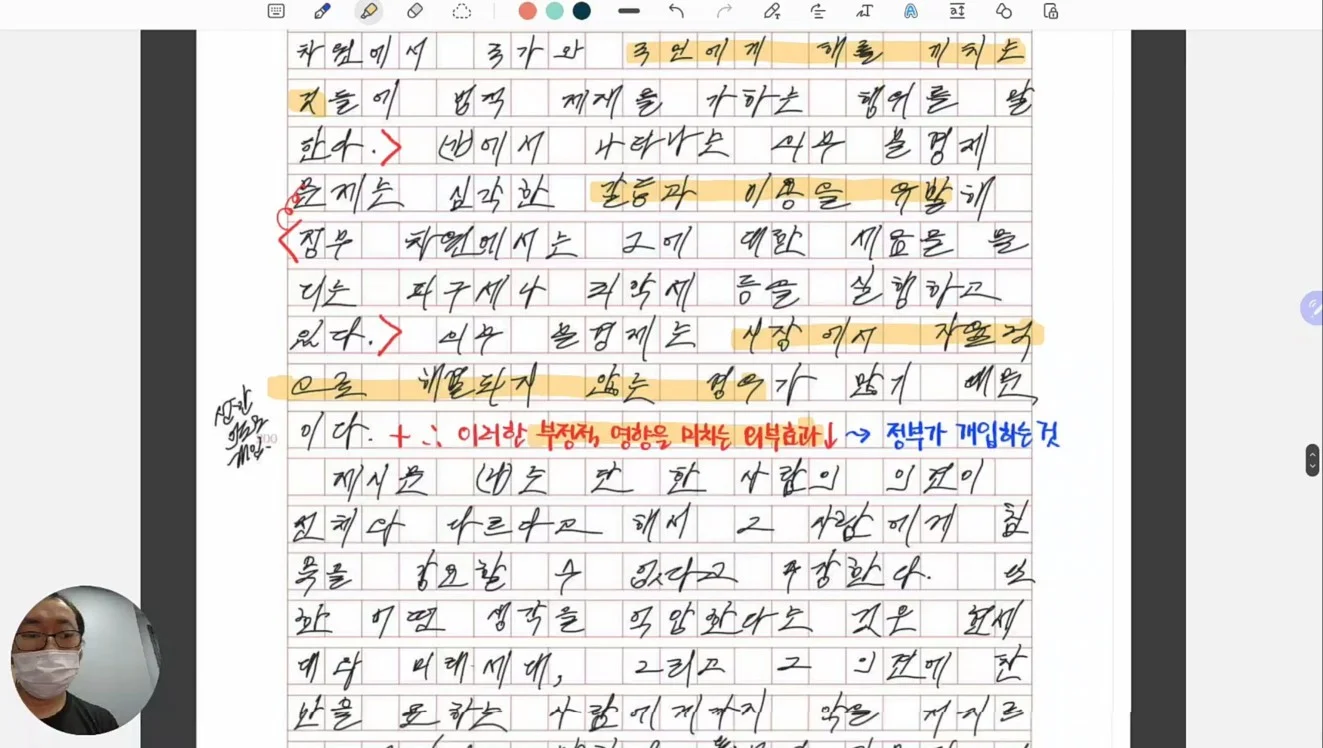 차원에서 국가와 국민에게 해를 끼치는
것들에 법적 제재를 가하는 행위를 말
한다. (가)에서 나타나는 외부 불경제
문제는 심각한 갈등과 비용을 유발해
정부 차원에서는 그에 대한 세금을 물
리는 피구세나 죄악세 등을 실행하고
있다. 외부 불경제는 시장에서 자율적
으로 해결되지 않는 경우가 많기 때문
이다. + ∴ 이러한 부정적 영향을 미치는 외부효과↓ ~> 정부가 개입하는 것
제시문 (나)는 단 한 사람의 의견이
전체와 다르다고 해서 그 사람에게 침
묵을 강요할 수 없다고 주장한다. 또
한 어떤 생각을 억압한다는 것은 현세
대와 미래 세대, 그리고 그 의견에 찬
반을 표하는 사람에게까지 악을 저지르